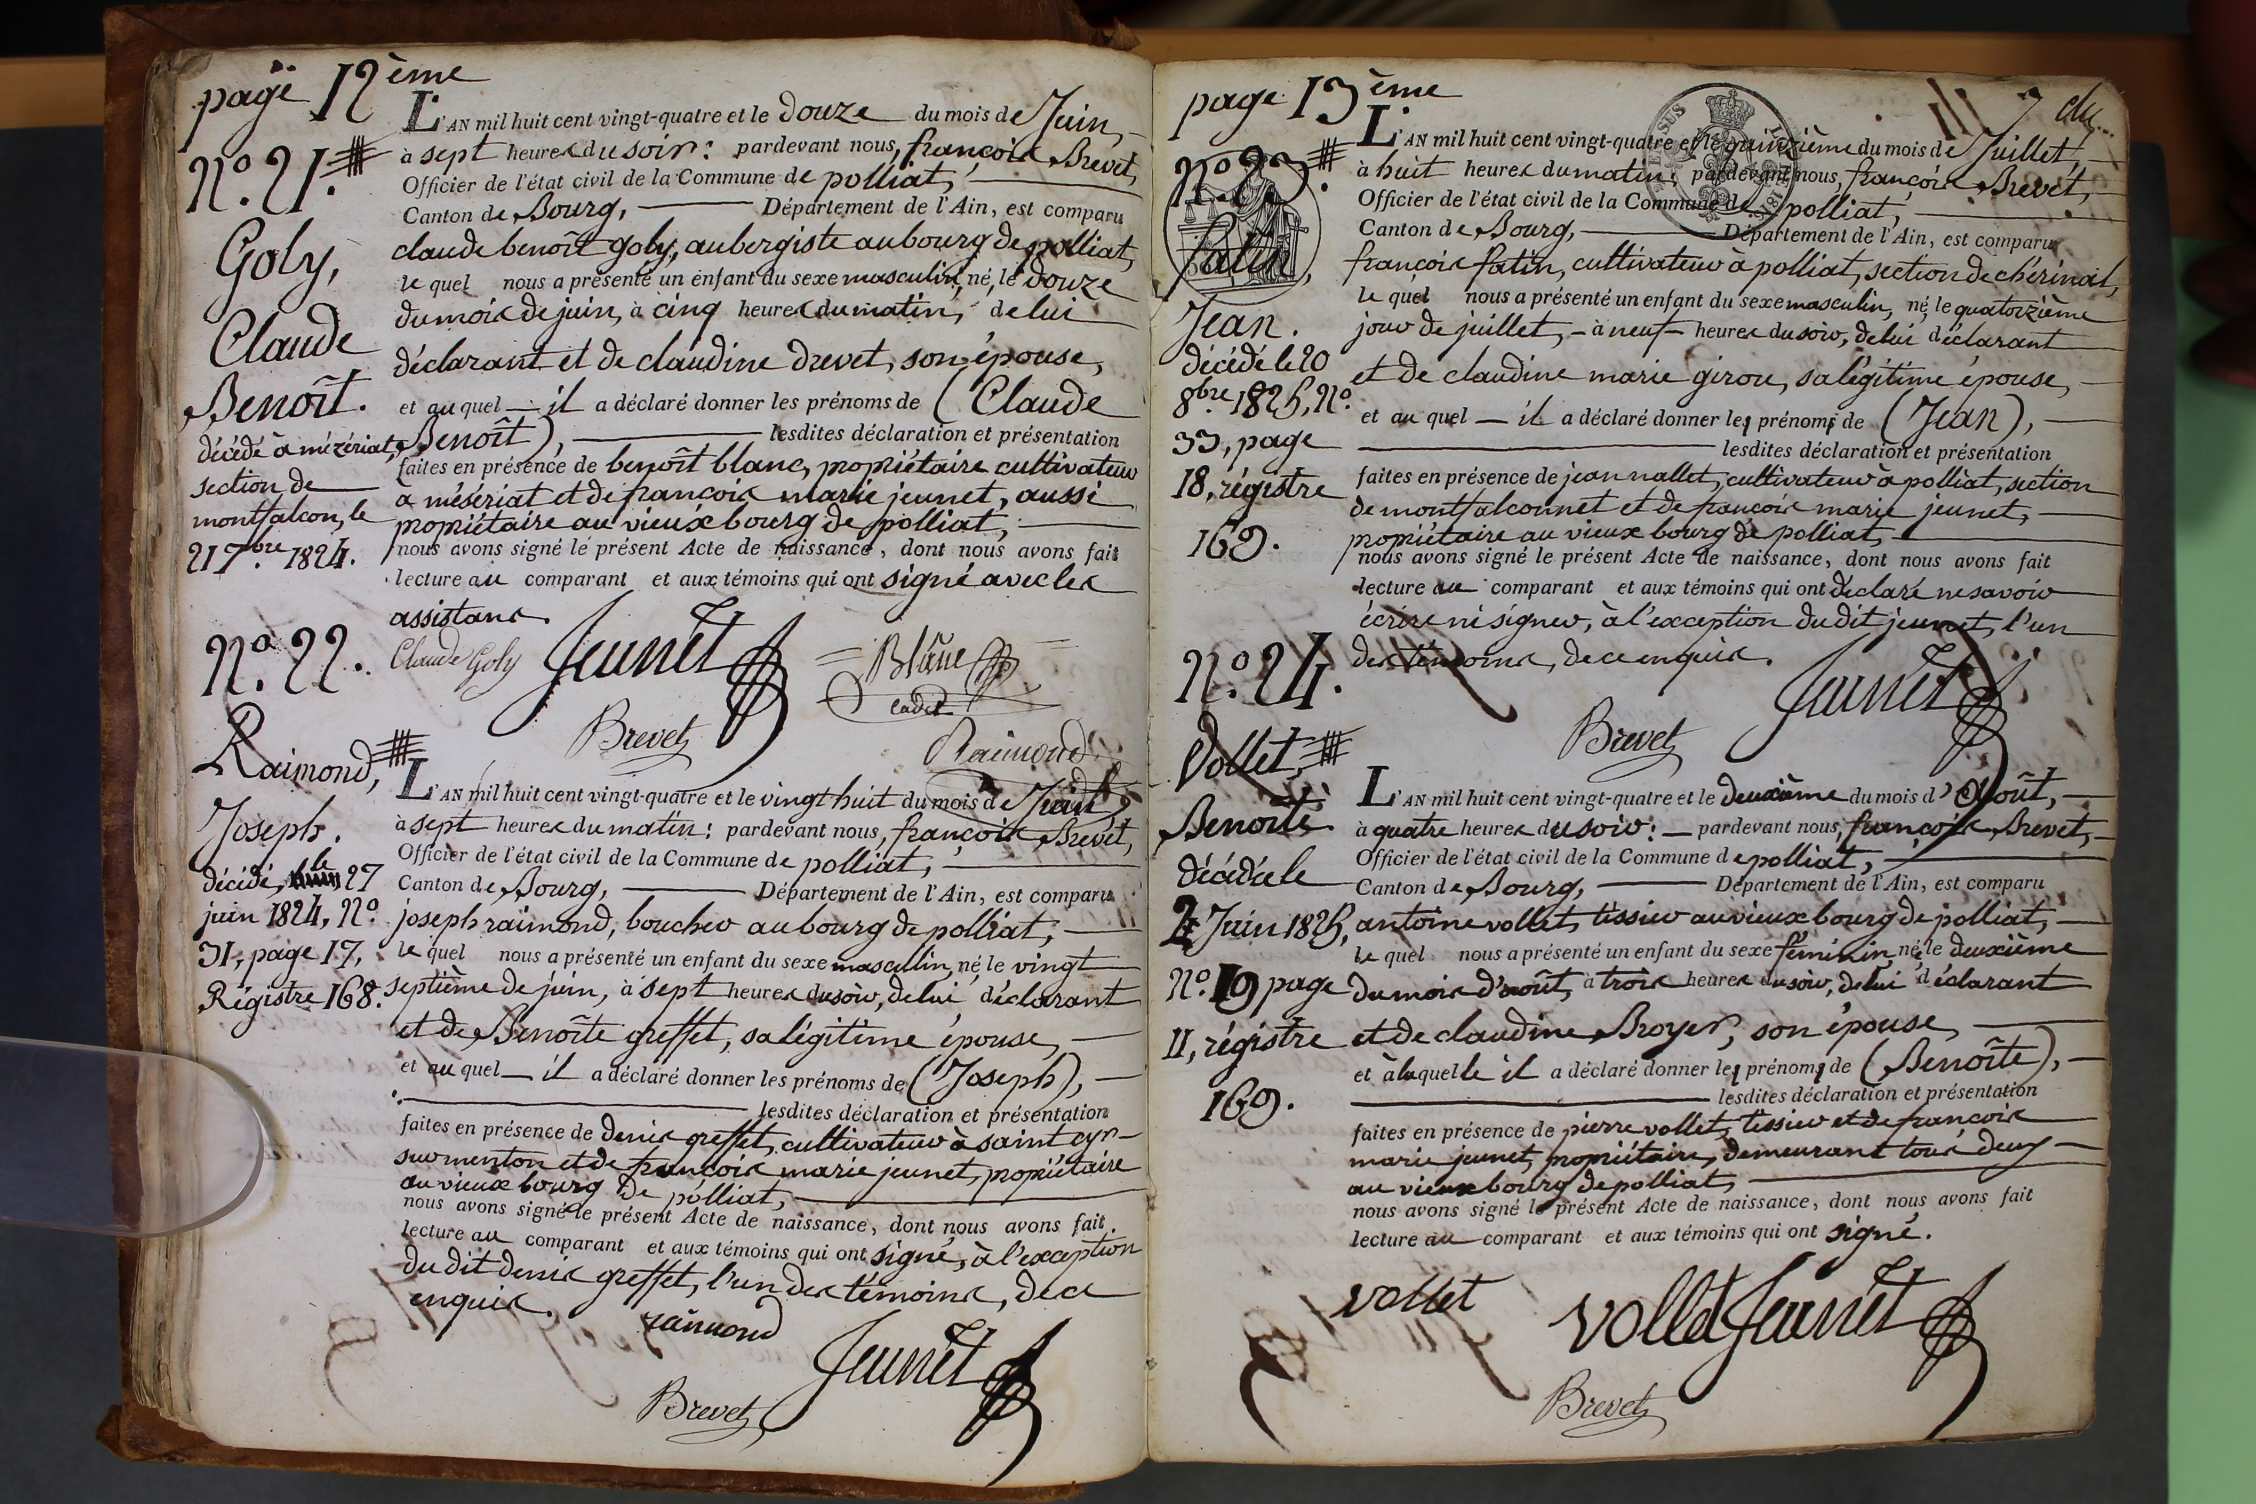 page 12ème
N.° 21.
Goly,
Claude
Benoît.
décédé à mézériat,
section de
montfalcon, le
21 7.bre 1824.
L'AN mil huit cent vingt-quatre et le douze du mois de Juin,
à sept heures du soir: pardevant nous, françois Brevet,
Officier de l'état civil de la Commune de polliat,
Canton de Bourg, Département de l'Ain, est comparu
claude benoît goly, aubergiste au bourg de polliat,
le quel nous a présenté un enfant du sexe masculin, né, le douze
du mois de juin, à cinq heures du matin, de lui
déclarant et de claudine drevet, son épouse,
et au quel il a déclaré donner les prénoms de (Claude
Benoît), lesdites déclaration et présentation
faites en présence de benoît blanc, propriétaire cultivateur
à mésériat et de françois marie jeunet, aussi
propriétaire au vieux bourg de polliat,
nous avons signé le présent Acte de naissance, dont nous avons fait
lecture au comparant et aux témoins qui ont signé avec les
assistans.
Claude Goly Jeunet Blanc
cadet
Brevet
Raimond
N.° 22.
Raimond,
Joseph.
décédé, le 27
juin 1824, N.°
31, page 17,
Régistre 168.
L'AN mil huit cent vingt-quatre et le vingt huit du mois de Juin,
à sept heures du matin: pardevant nous, françois Brevet,
Officier de l'état civil de la Commune de polliat,
Canton de Bourg, Département de l'Ain, est comparu
joseph raimond, boucher au bourg de polliat,
le quel nous a présenté un enfant du sexe masculin, né, le vingt
septième de juin, à sept heures du soir, de lui déclarant
et de Benoîte greffet, sa légitime épouse,
et au quel il a déclaré donner les prénoms de (Joseph),
lesdites déclaration et présentation
faites en présence de denis greffet, cultivateur à saint cyr-
sur menton et de françois marie jeunet, propriétaire
au vieux bourg de polliat,
nous avons signé le présent Acte de naissance, dont nous avons fait
lecture au comparant et aux témoins qui ont signé, à l'exception
du dit denis greffet, l'un des témoins, de ce
enquis.
raimond
Jeunet
Brevet
page 13ème
N.° 23.
fatin,
Jean.
décédé le 20
8.bre 1825, N.°
33, page
18, régistre
169.
L'AN mil huit cent vingt-quatre et le quinzième du mois de Juillet,
à huit heures du matin; pardevant nous, françois Brevet,
Officier de l'état civil de la Commune de polliat,
Canton de Bourg, Département de l'Ain, est comparu
françois fatin, cultivateur à polliat, section de chérinal,
le quel nous a présenté un enfant du sexe masculin, né, le quatorzième
jour de juillet, à neuf heures du soir, de lui déclarant
et de claudine marie girou, sa légitime épouse,
et au quel il a déclaré donner les prénoms de (Jean),
lesdites déclaration et présentation
faites en présence de jean nallet, cultivateur à polliat, section
de montfalconnet et de françois marie jeunet,
propriétaire au vieux bourg de polliat,
nous avons signé le présent Acte de naissance, dont nous avons fait
lecture au comparant et aux témoins qui ont déclaré ne savoir
écrire ni signer, à l'exception du dit jeunet, l'un
des témoins, de ce enquis.
Jeunet
Brevet
N.° 24.
Vollet,
Benoîte
décédée le
2 Juin 1825,
N.° 19 page
11, régistre
169.
L'AN mil huit cent vingt-quatre et le deuxième du mois d'Août,
à quatre heures du soir: pardevant nous, françois Brevet,
Officier de l'état civil de la Commune de polliat,
Canton de Bourg, Département de l'Ain, est comparu
antoine vollet, tissier au vieux bourg de polliat,
le quel nous a présenté un enfant du sexe féminin, né, le deuxième
du mois d'août, à trois heures du soir, de lui déclarant
et de claudine Broyer, son épouse,
et à laquelle il a déclaré donner les prénoms de (Benoîte),
lesdites déclaration et présentation
faites en présence de pierre vollet, tissier et de françois
marie jeunet, propriétaire, demeurant tous deux
au vieux bourg de polliat,
nous avons signé le présent Acte de naissance, dont nous avons fait
lecture au comparant et aux témoins qui ont signé.
vollet vollet Jeunet
Brevet